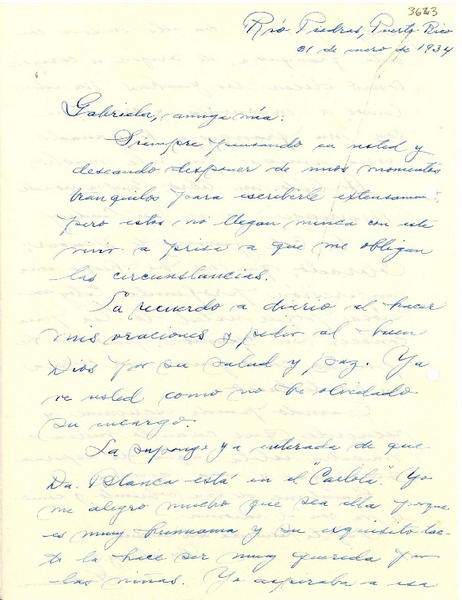 3623
Río Piedras, Puerto Rico
31 de enero de 1934
Gabriela, amiga mía:
Siempre pensando en usted y
deseando disponer de unos momentos
tranquilos para escribirle extensamente
pero estos no llegan nunca con este
vivir a prisa a que me obligan
las circunstancias.
La recuerdo a diario al hacer
mis oraciones y pedir al buen
Dios por su salud y paz. Ya
ve usted como no he olvidado
su encargo.
La supongo ya enterada de que
Da. Blanca está en el "Carlota". Yo
me alegro mucho que sea ella porque
es muy humana y su exquisito tac-
to la hace ser muy querida por
las niñas. Yo aspiraba a esa